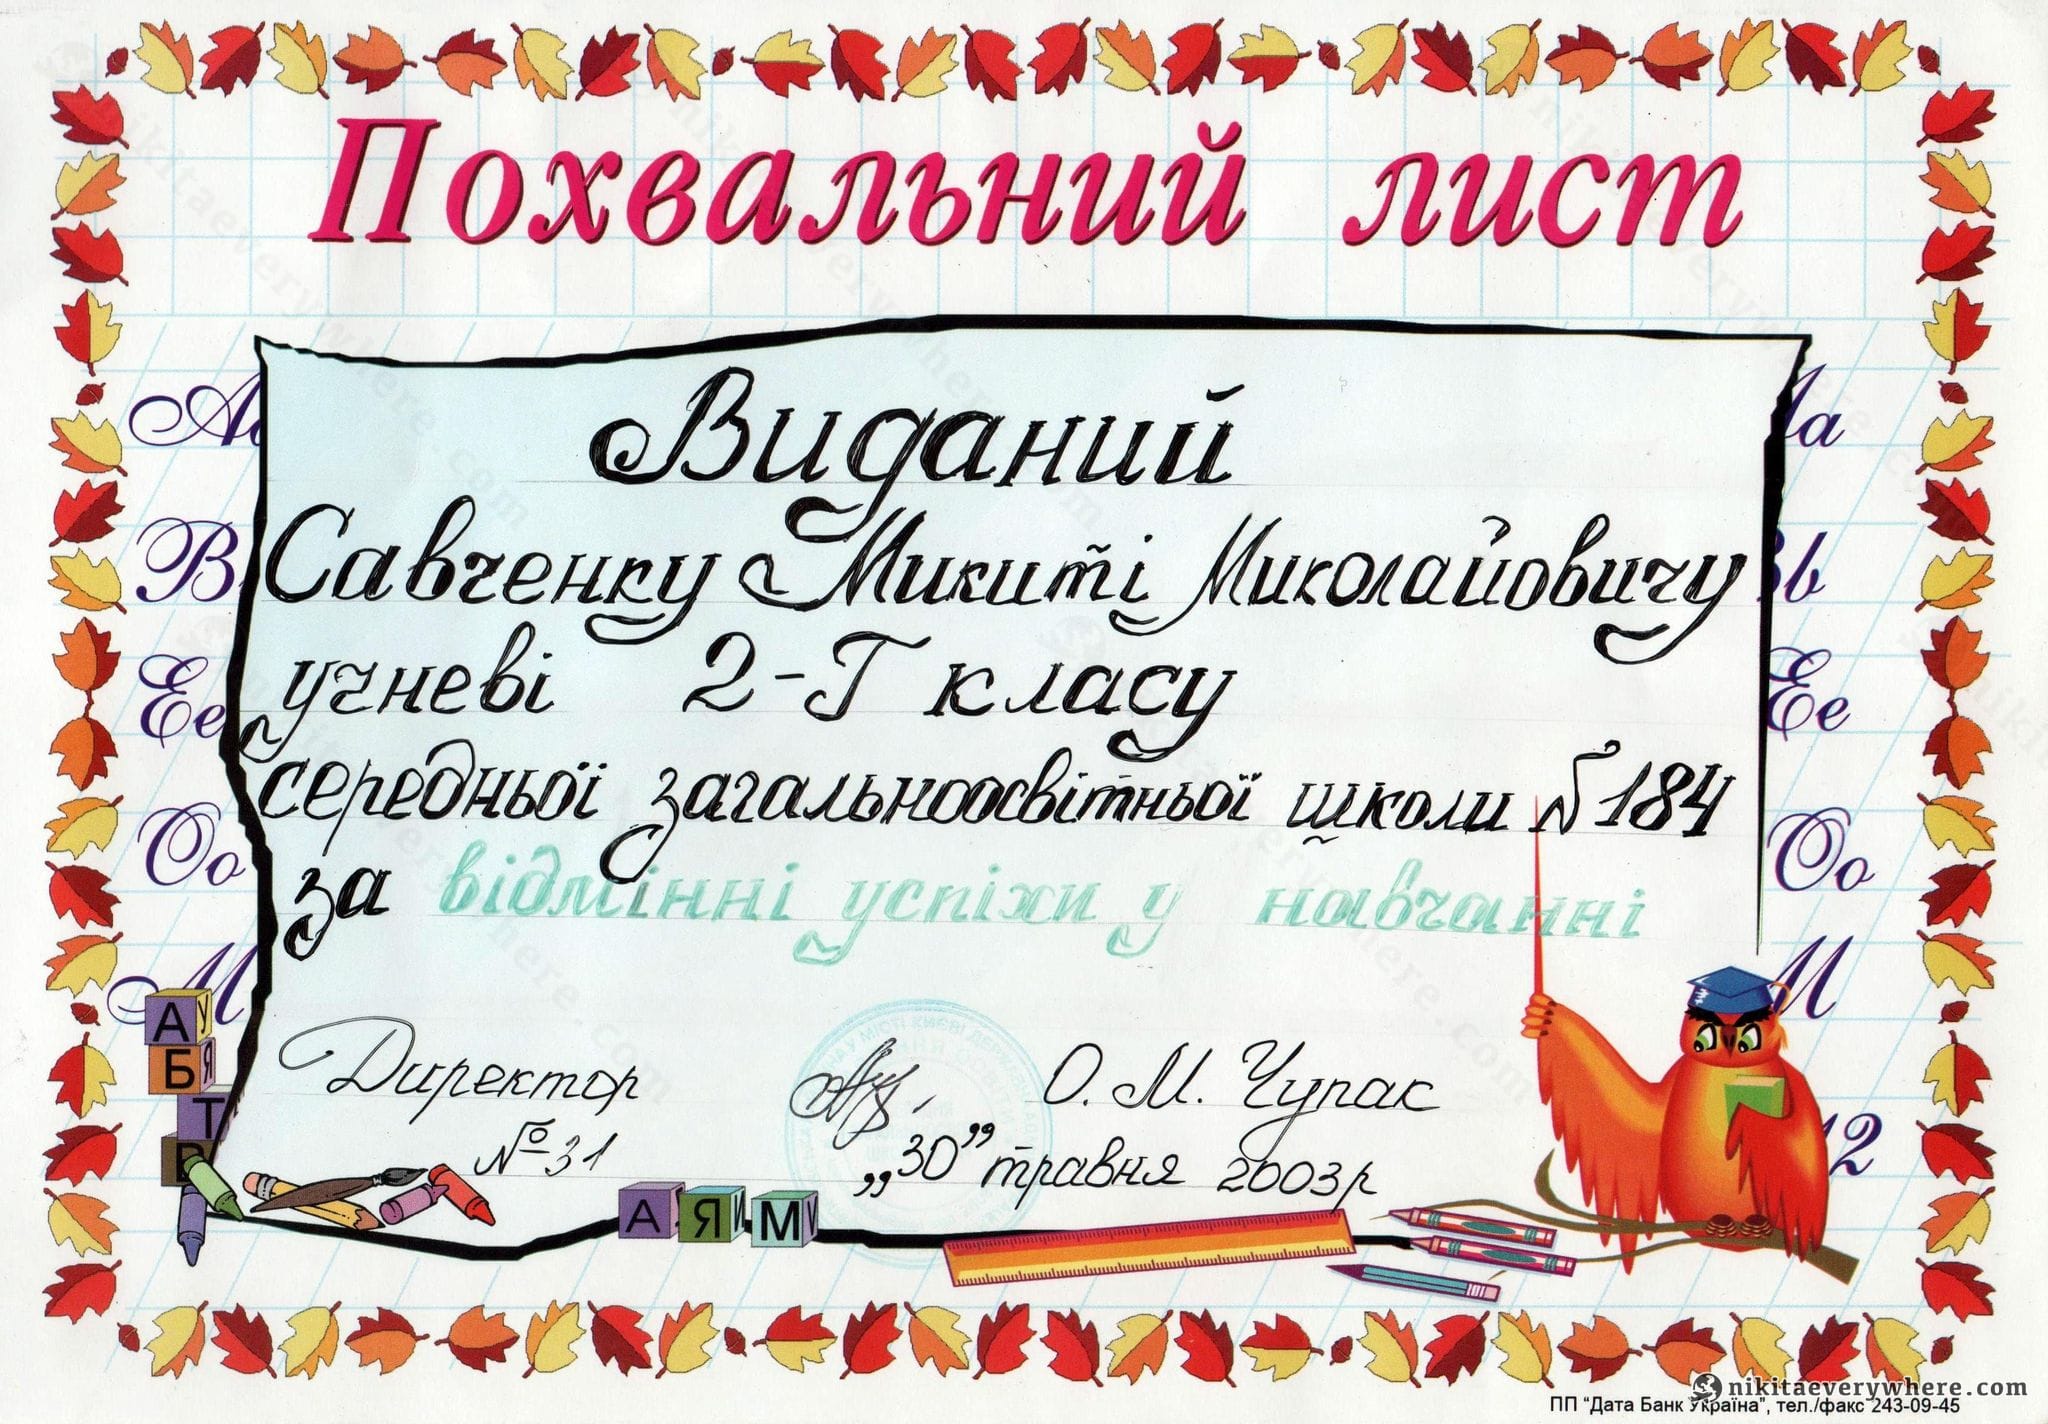 Похвальний лист
Виданий
Савченку Микиті Миколайовичу
учневі 2-Г класу
середньої загальноосвітньої школи №184
за відмінні успіхи у навчанні
Директор О. М. Чупак
№31 „30” травня 2003р
Ее
Оо
М
Ее
Оо
М
12
А
У
Б
Я
Т
В
А Я М
nikitaeverywhere.com
ПП “Дата Банк Україна”, тел./факс 243-09-45